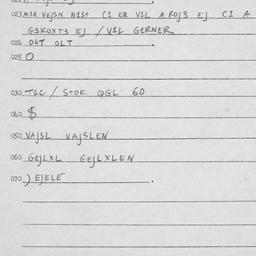 023 MSR VEJSN N1S+ C1 ER V1L A ROJ3 EJ C1 A
G3KOXT3 EJ / V1L GERNER
026 OLT OLT
025 O
030 T1C / STOK QGL 60
040 $
050 VAJSL VAJSLEN
060 GEJLXL GEJLXLEN
070 ) EJELE